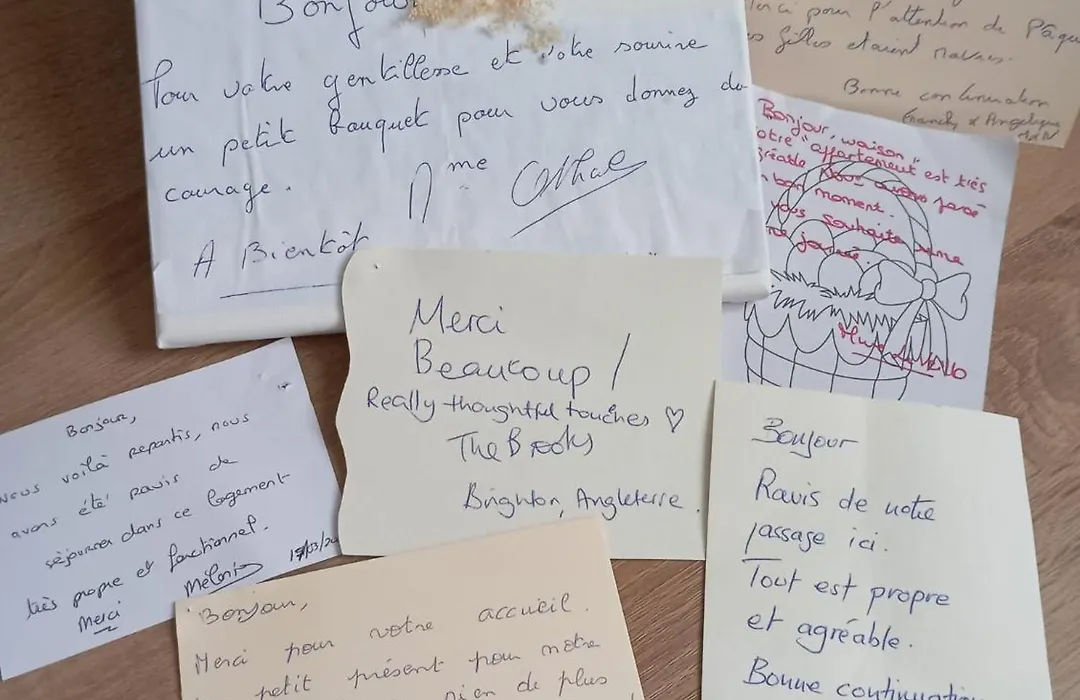 Bonjour
Pour votre gentillesse et votre sourire
un petit bouquet pour vous donnez du
courage.
Mme
A Bientôt
Merci pour l'attention de Pâques
filles etaient ravies.
Bonne continuation
Franck & Angelique
Bonjour,
votre "appartement" est très
agréable Nous avons passé
bon moment.
vous souhaite une
journée.
Merci
Beaucoup !
Really thoughtful touches ♡
The Brooks
Brighton, Angleterre.
Bonjour,
Nous voilà repartis, nous
avons été ravis de
séjourner dans ce logement
très propre et fonctionnel.
Merci
Bonjour
Ravis de notre
passage ici.
Tout est propre
et agréable.
Bonne continuation
Bonjour,
Merci pour votre accueil.
petit présent pour notre
rien de plus